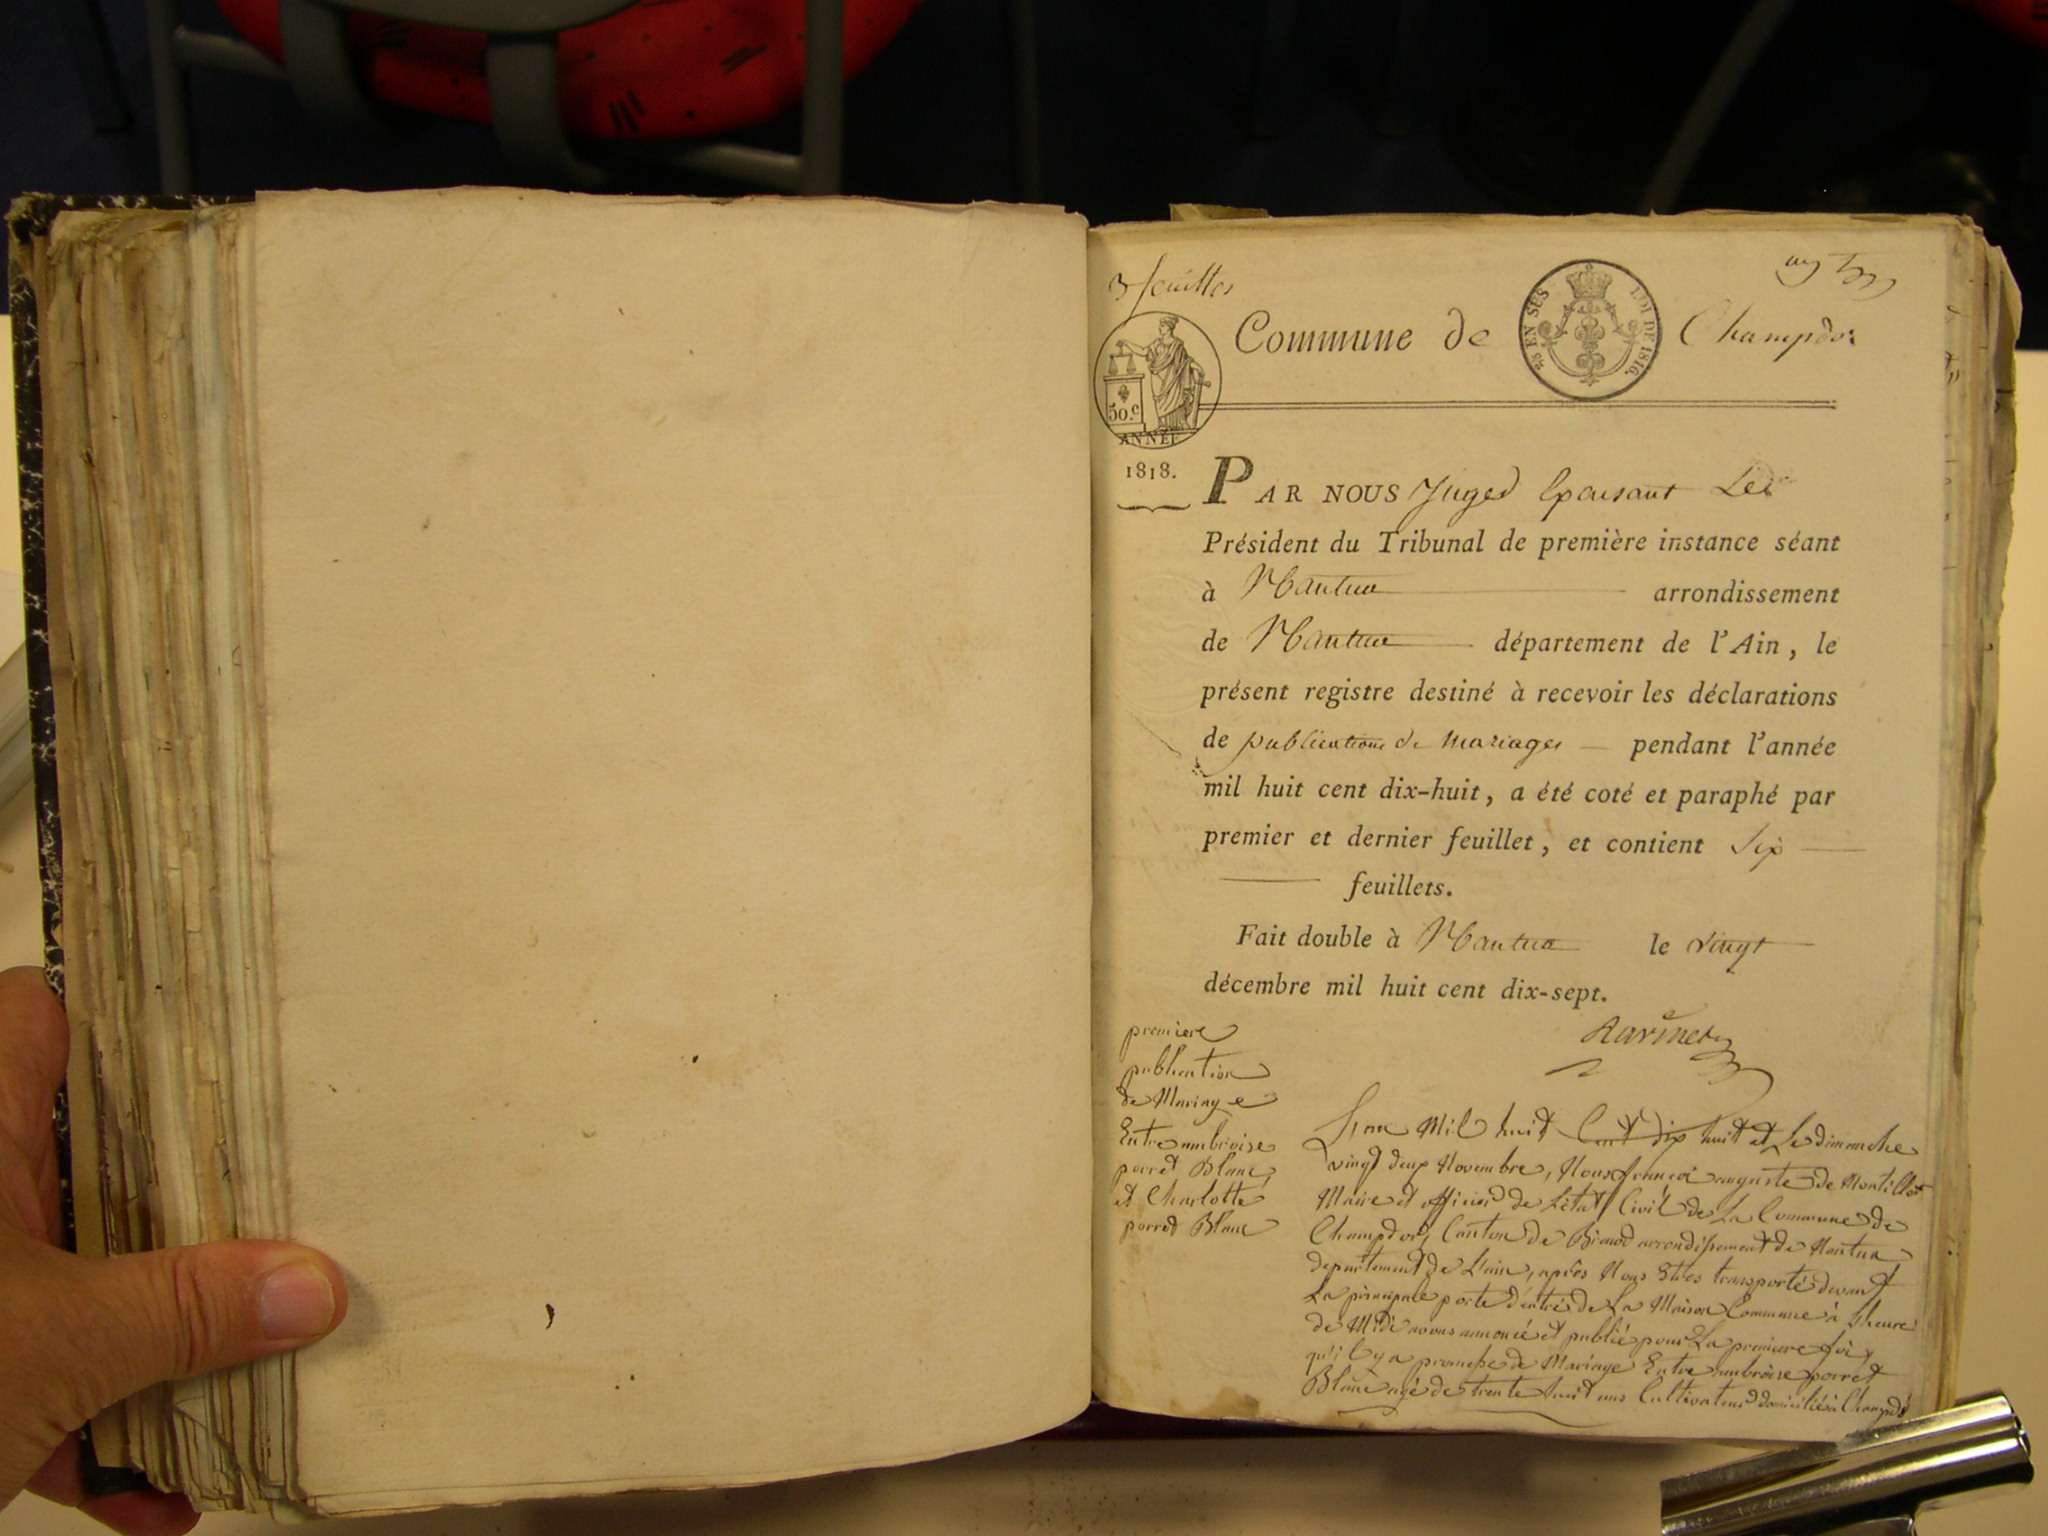 3 feuilles
Commune de Champdor
RS EN SUS LOI DE 1816.
50.c
ANNÉE
1818.
PAR NOUS Juged Exerçant Les
Président du Tribunal de première instance séant
à Nantua arrondissement
de Nantua département de l'Ain, le
présent registre destiné à recevoir les déclarations
de publications de mariages pendant l'année
mil huit cent dix-huit, a été coté et paraphé par
premier et dernier feuillet, et contient Six
feuillets.
Fait double à Nantua le vingt
décembre mil huit cent dix-sept.
Ravinet
premiere
publication
de Mariage
Entre ambroise
perret Blanc
et Charlotte
perret Blanc
L'an Mil huit Cent dix huit et Le dimanche
vingt deux Novembre, Nous françoi auguste de Montillet
Maire et officier de L'état Civil de La Commune de
Champdor, Canton de Brenod arrondissement de Nantua
departement de L'ain, après Nous Etres transporté devant
La principale porte d'entré de La Maison Commune à L'heure
de Midi avons annoncé et publié pour La premiere foi
qu'il y a promesse de Mariage Entre ambroise perret
Blanc agé de trente huit ans Cultivateur domicilié à Champdor